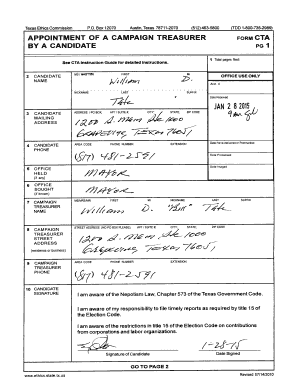 Texas Ethics Commission P.O. Box 12070 Austin, Texas 78711-2070 (512) 463-5800 (TDD 1-800-735-2989)
APPOINTMENT OF A CAMPAIGN TREASURER
BY A CANDIDATE
FORM CTA
PG 1
See CTA Instruction Guide for detailed instructions.
1 Total pages filed:
2 CANDIDATE NAME
MS / MRS / MR FIRST MI
William D.
NICKNAME LAST SUFFIX
Tate
OFFICE USE ONLY
Date Received
JAN 28 2015
3 CANDIDATE MAILING ADDRESS
ADDRESS / PO BOX; APT / SUITE #; CITY; STATE; ZIP CODE
1200 S. Main, Ste 1000
Grapevine, Texas 76051
4 CANDIDATE PHONE
AREA CODE PHONE NUMBER EXTENSION
(817) 481-2591
Date Hand-delivered or Postmarked
Date Processed
5 OFFICE HELD (if any)
MAYOR
Date Imaged
6 OFFICE SOUGHT (if known)
MAYOR
7 CAMPAIGN TREASURER NAME
MS/MRS/MR FIRST MI NICKNAME LAST SUFFIX
William D. "Bill" Tate
8 CAMPAIGN TREASURER STREET ADDRESS (residence or business)
STREET ADDRESS (NO PO BOX PLEASE); APT / SUITE #; CITY; STATE; ZIP CODE
1200 S. Main, Ste 1000
Grapevine, Texas 76051
9 CAMPAIGN TREASURER PHONE
AREA CODE PHONE NUMBER EXTENSION
(817) 481-2591
10 CANDIDATE SIGNATURE
I am aware of the Nepotism Law, Chapter 573 of the Texas Government Code.
I am aware of my responsibility to file timely reports as required by title 15 of
the Election Code.
I am aware of the restrictions in title 15 of the Election Code on contributions
from corporations and labor organizations.
1-28-15
Signature of Candidate Date Signed
GO TO PAGE 2
www.ethics.state.tx.us Revised 07/14/2010